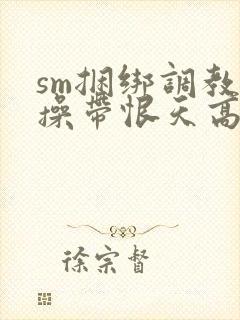 sm捆绑調教
操帶恨天高
徐宗督